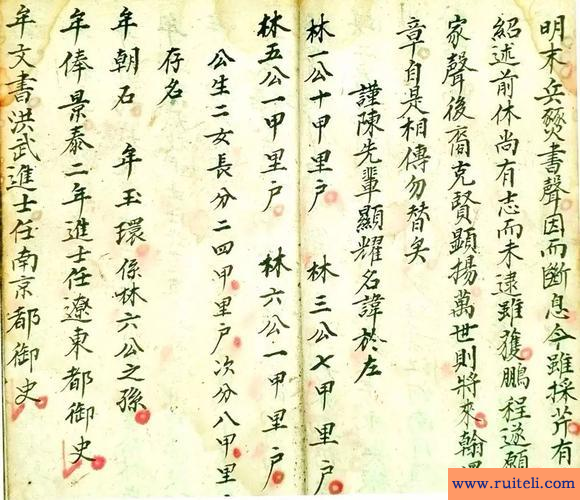 明末兵燹書聲因而斷息今雖採芹有
紹述前休尚有志而未逮雖獲鵬程遂願
家聲後裔克賢顯揚萬世則將來翰
章自是相傳勿替矣
謹陳先輩顯耀名諱於左
林一公十甲里户 林三公七甲里户
林五公一甲里户 林六公一甲里户
公生二女長分二四甲里户次分八甲里
存名
牟朝石 牟玉環係林六公之孫
牟俸景泰二年進士任遼東都御史
牟文書洪武進士任南京都御史
www.ruiteli.com